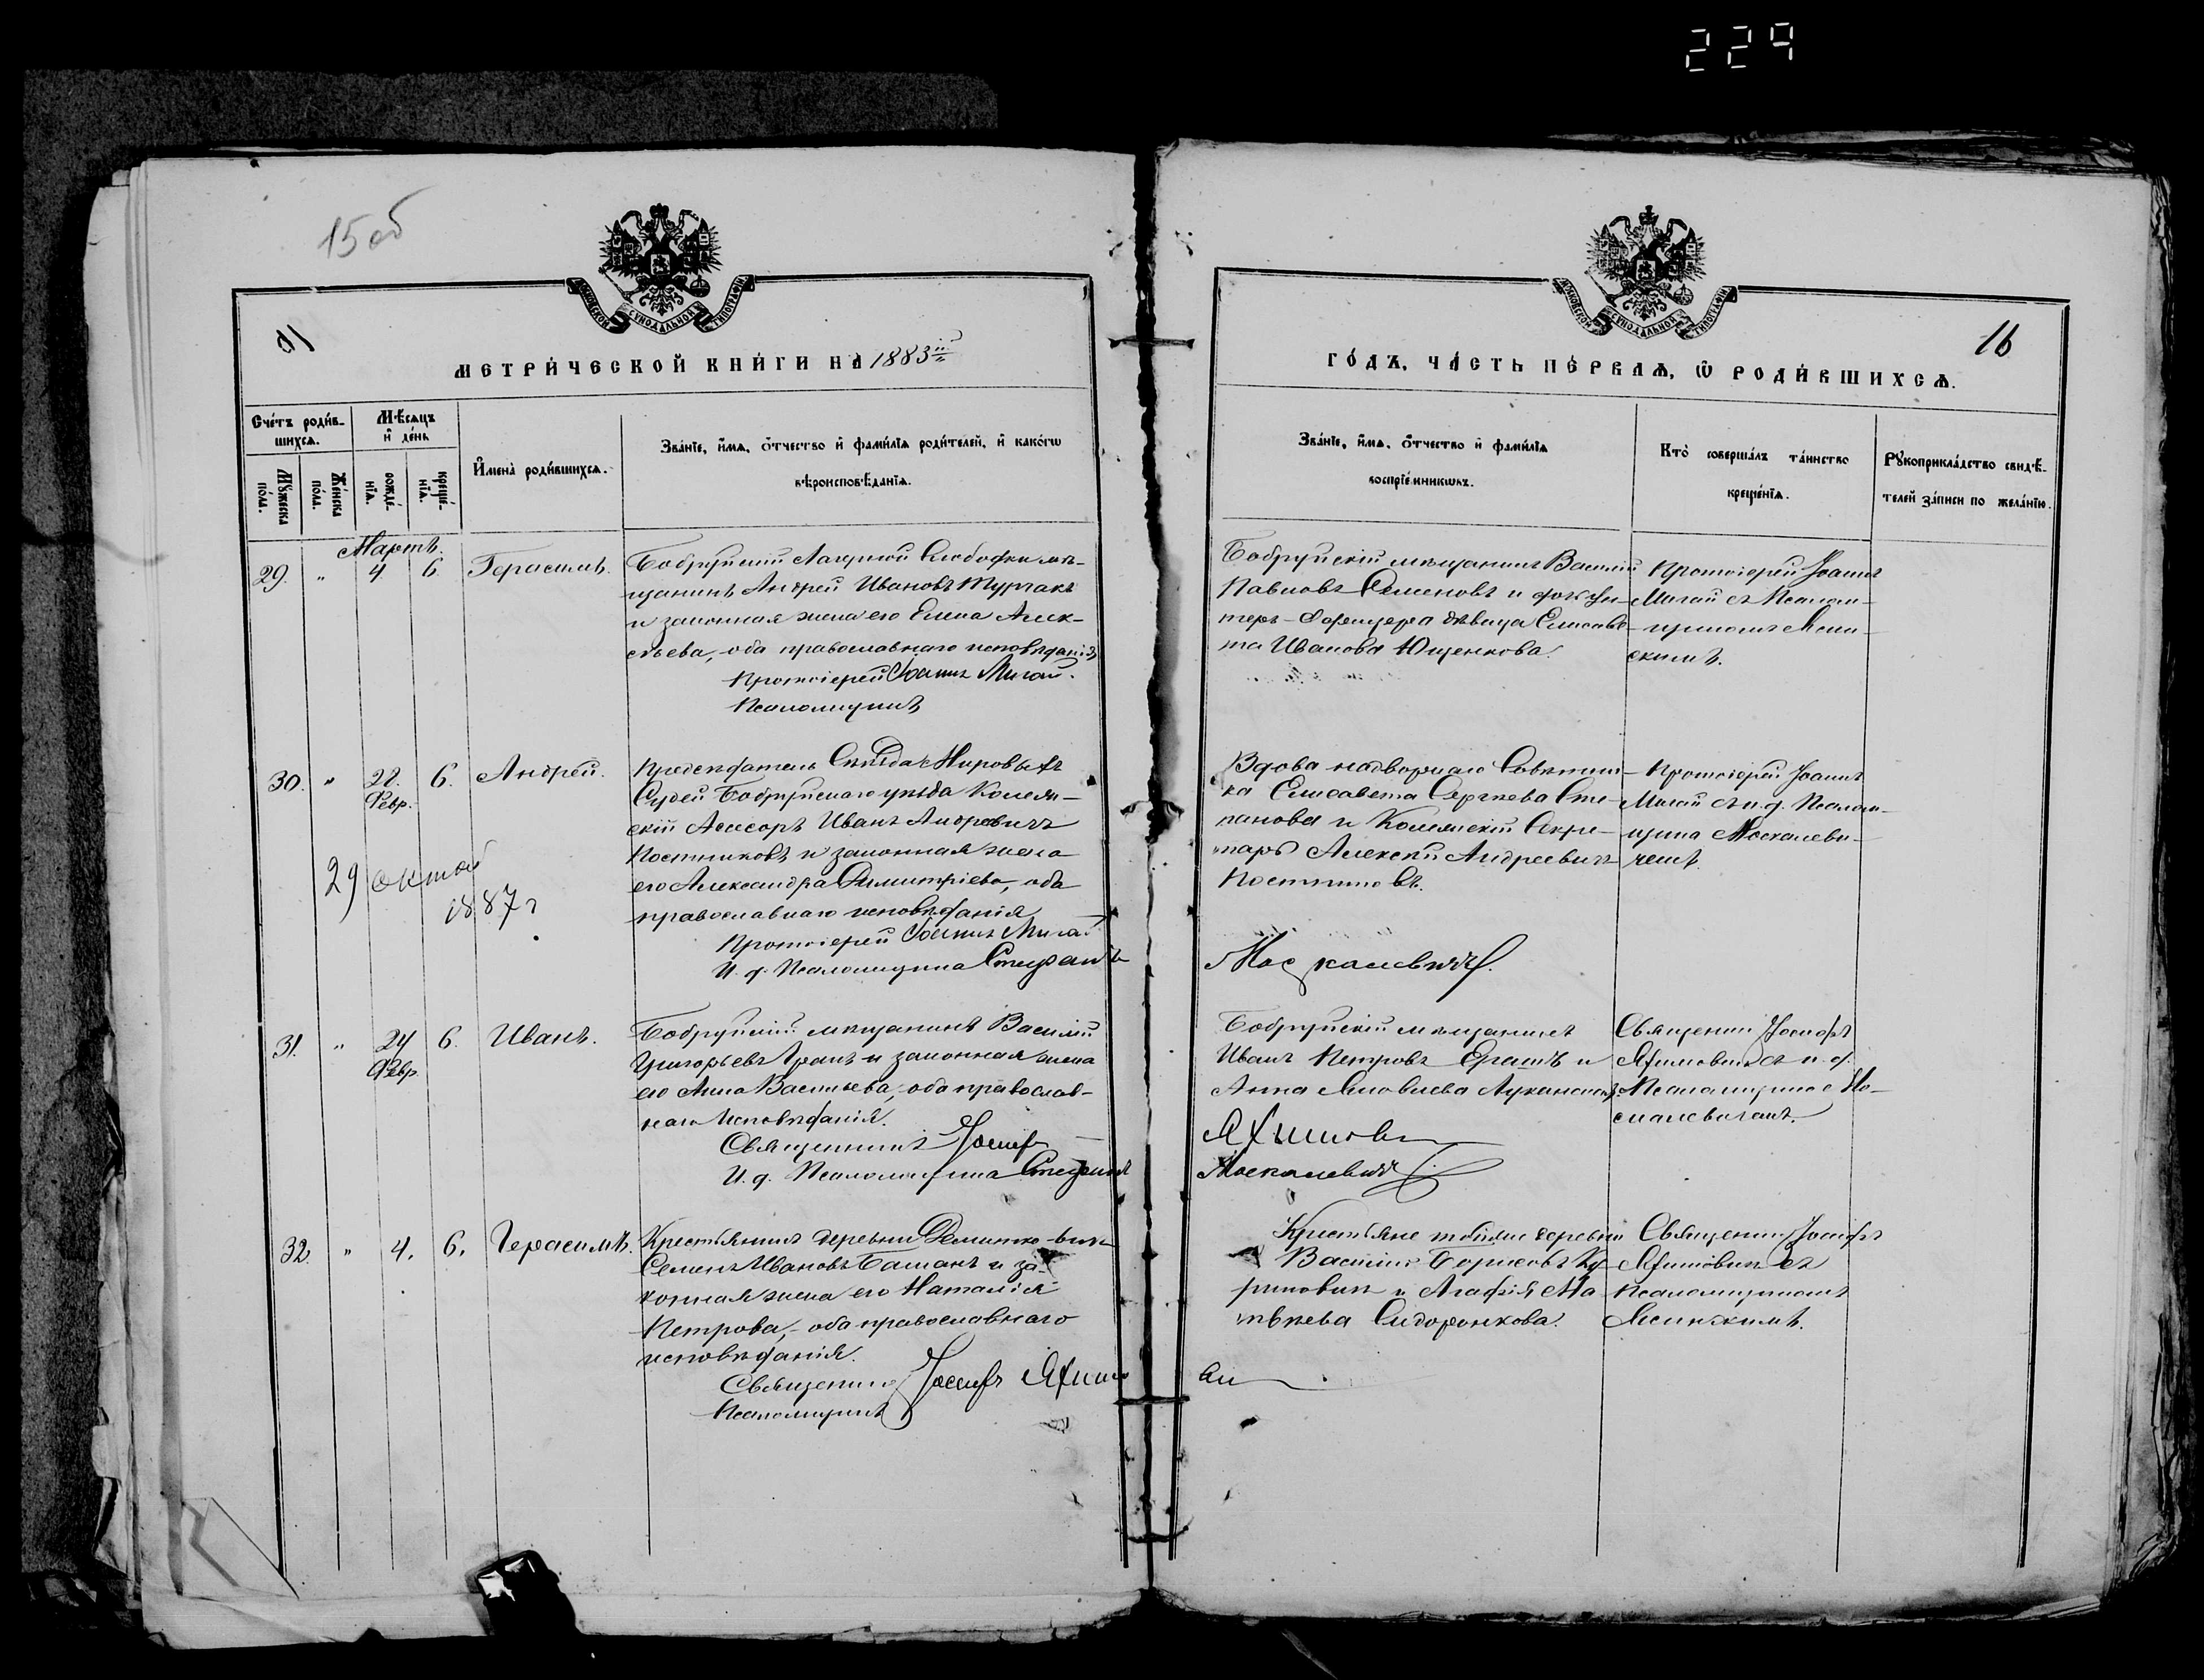 224
15 об
16
МЕТРИ́ЧЕСКОЙ КНИ́ГИ НА 1883й
ГО́ДЪ, ЧА́СТЬ ПЕ́РВАѦ, Ѽ РОДИ́ВШИХСѦ.
МОСКОВСКОЙ СУНОДАЛЬНОЙ ТИПОГРАФІИ
МОСКОВСКОЙ СУНОДАЛЬНОЙ ТИПОГРАФІИ
Сче́тъ роди́в-
шихсѧ.
Мꙋ́жеска по́ла.
Же́нска по́ла.
Мѣ́сѧцъ
и҆ де́нь
рожде́-
нїѧ.
креще́-
нїѧ.
И҆мена̀ роди́вшихсѧ.
Зва́нїе, и҆́мѧ, ѻ҆́тчество и҆ фами́лїѧ роди́телей, и҆ како́гѡ
вѣроисповѣ́данїѧ.
Зва́нїе, и҆́мѧ, ѻ҆́тчество и҆ фами́лїѧ
воспрїе́мникѡвъ.
Кто̀ соверша́лъ та́инство
креще́нїѧ.
Рꙋкоприкла́дство свидѣ́-
телей за́писи по жела́нїю.
Мартъ.
29. " 4 6. Герасимъ.
Бобруйскій Лапичской Слободки мѣ-
щанинъ Андрей Ивановъ Турчакъ
и законная жена его Елена Алек-
сѣева, оба православнаго исповѣданія
Протоіерей Іоаннъ Мигай.
Псаломщикъ
Бобруйскій мѣщанинъ Василій
Павловъ Семеновъ и дочь Ун-
теръ-Офицера дѣвица Елисаве-
та Иванова Ющенкова.
Протоіерей Іоаннъ
Мигай съ Псалом-
щикомъ
скимъ.
30. " 22 Февр. 6. Андрей.
29 октой
1887 г
Предсѣдатель Съѣзда Мировыхъ
Судей Бобруйскаго уѣзда Коллеж-
скій Асессоръ Иванъ Андреевичъ
Постниковъ и законная жена
его Александра Димитріева, оба
православнаго исповѣданія
Протоіерей Іоаннъ Мигай
И. д. Псаломщика Стефанъ
Вдова надворнаго Совѣтни-
ка Елисавета Сергѣева Сте-
панова и Коллежскій Секре-
тарь Алексѣй Андреевичъ
Постниковъ.
Москалевичъ.
Протоіерей Іоаннъ
Мигай съ и. д. Псалом-
щика Москалеви-
чемъ.
31. " 24 Февр. 6. Иванъ.
Бобруйскій мѣщанинъ Василій
Григорьевъ и законная жена
его Анна Васильева, оба православ-
наго исповѣданія.
Священникъ Іосифъ
И. д. Псаломщика Стефанъ
Бобруйскій мѣщанинъ
Иванъ Петровъ и
Анна Яковлева
Яхимови
Москалевичъ
Священникъ Іосифъ
Яхимовичъ съ и. д.
Псаломщика Мо-
скалевичемъ.
32. " 4. 6. Герасимъ.
Крестьянинъ деревни
Семенъ Ивановъ Башанъ и за-
конная жена его Наталія
Петрова, оба православнаго
исповѣданія.
Священникъ Іосифъ Яхимо
Псаломщикъ
Крестьяне тойже деревни
Василій Борисовъ Ку-
риловичъ и Агафія Ма-
твѣева Сидоренкова.
ви
Священникъ Іосифъ
Яхимовичъ съ
Псаломщикомъ